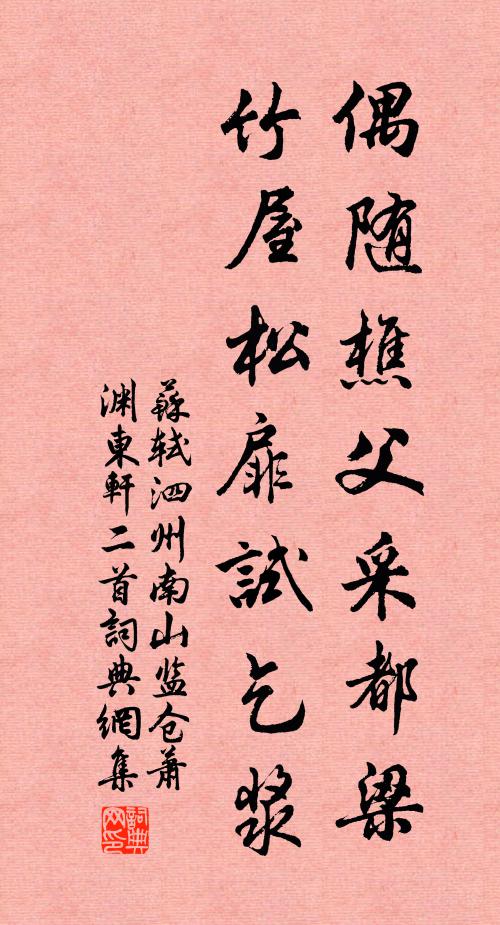 偶随樵父采都梁
竹屋松扉試乞漿
蘇轼泗州南山监仓萧
渊東軒二首詞典網集
詞典網印